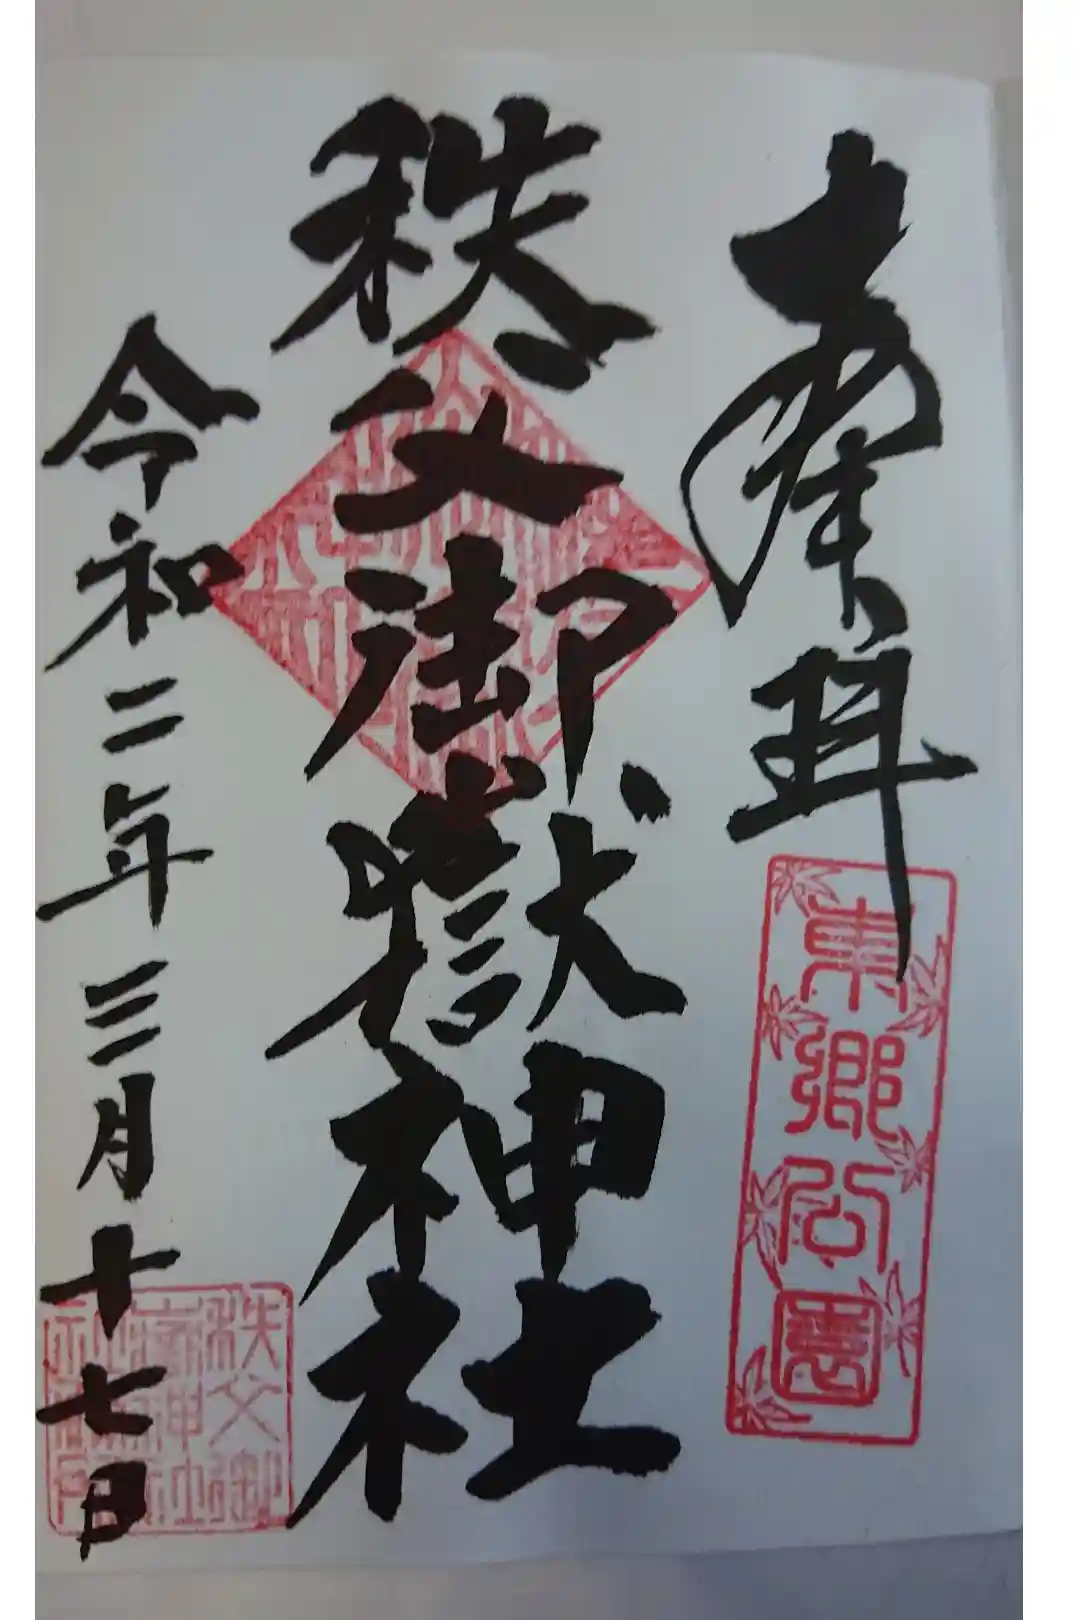 奉拝
東郷公園
秩父御嶽神社
令和二年三月十七日
秩父御